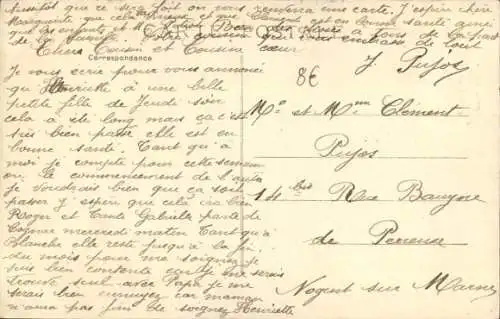 aussitôt que ce sera fait on vous enverra une carte. J'espère chère
Marguerite que cela et que Clément est en bonne santé ainsi
que les enfants et Bons baisers à tous de la part
de vous embrasse de tout
Chers Cousin et Cousine cœur
Correspondance
J. Pujos
8€
Je vous écris pour vous annoncé
qu'Henriette à une belle
petite fille de Jeudi soir
cela à été long mais ça c'est
très bien passé elle est en
bonne santé. Tant qu'à
moi je compte pour cette semaine
ou le commencement de l'autre
je voudrais bien que ça soit
passer j'espère que cela ira bien
Roger et Tante Gabrielle parte de
Cognac mercredi matin Tant qu'à
Blanche elle reste jusqu'à la fin
du mois pour me soigner je
suis bien contente car je me serais
trouvé seul avec Papa je me
serais bien ennuyer car maman
n'aura pas fini de soigner Henriette
Mr et Mme Clément
Pujos
14 bis Rue
de
Nogent sur Marne